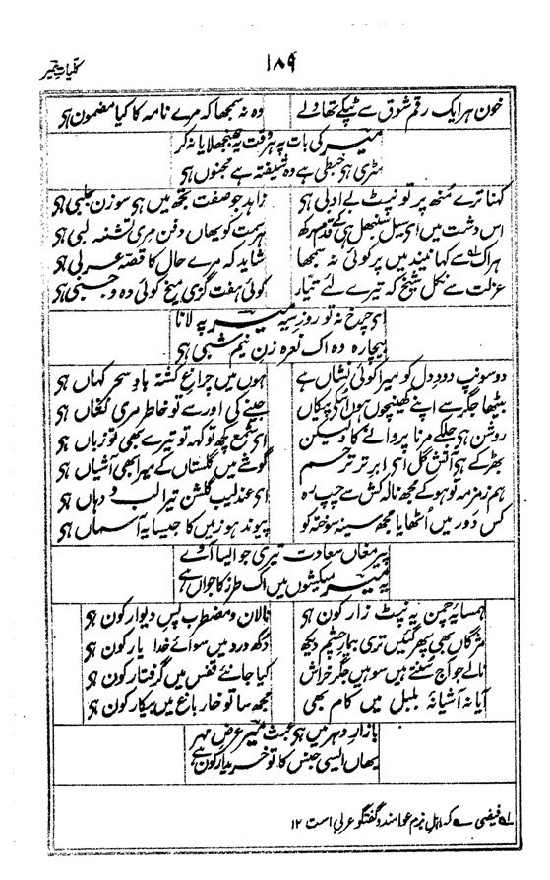 کلیات میر
۱۸۹
خون ہر ایک رقم شوق سے ٹپکے تھا ولے وہ نہ سمجھا کہ مرے نامہ کا کیا مضموں ہی
میر کی بات پہ ہر وقت یہ جھنجھلایا نہ کر
سڑی ہی خبطی ہے وہ شیفتہ ہے مجنوں ہی
کہنا ترے منھ پر تو نپٹ بے ادبی ہی زاہد جو صفت تجھ میں ہی سوزن جلبی ہی
اس دشت میں ای سیل سنبھل ہی کے قدم رکھ ہر سمت کو یھاں دفن مری تشنہ لبی ہی
ہر اک سے کہا نیند میں پر کوئی نہ سمجھا شاید کہ مرے حال کا قصہ عربی ہی
عزلت سے نکل شیخ کہ تیرے لئے تیار کوئی ہفت گزی میخ کوئی دہ وجبی ہی
ای چرخ نہ تو روز سیہ میر پہ لانا
بیچارہ وہ اک نعرہ زن نیم شبی ہی
دو سونپ دود دل کو میرا کوئی نشاں ہے ہوں میں چراغ کشتہ باد سحر کہاں ہی
بیٹھا جگر سے اپنے کھینچوں ہوں اسکے پیکاں جینے کی اور سے تو خاطر مری نشاں ہی
روشن ہی جلکے مرنا پروانے کا ولیکن ای شمع کچھ تو کہہ تو تیرے بھی تو زباں ہی
بھڑکے ہی آتش گل ای ابر تر ترحم گوشے میں گلستاں کے میرا بھی آشیاں ہی
ہم زمزمہ تو ہو کے مجھ نالہ کش سے چپ رہ ای عندلیب گلشن تیرا لب و دہاں ہی
کس دور میں اٹھایا مجھ سینہ سوختہ کو پیوند ہو زمیں کا جیسا یہ آسماں ہی
پیر مغاں سعادت تیری جو ایسا آوے
یہ میر میکشوں میں اک طرز کا جواں ہے
ہمسایۂ چمن یہ نپٹ زار کون ہی نالان و مضطرب پس دیوار کون ہی
مژگاں بھی پھر گئیں تری بیمار چشم دیکھ دکھ درد میں سوائے خدا یار کون ہی
نالے جو آج سنتے ہیں سو ہیں جگر خراش کیا جانئے قفس میں گرفتار کون ہی
آیا نہ آشیانۂ بلبل میں کام بھی مجھ سا تو خار باغ میں بیکار کون ہی
بازار دہر میں ہی عبث میر عرض مہر
یھاں ایسی جنس کا تو خریدار کون ہے
لہ فیضی ؎ کہ اہل بزم عوامند و گفتگو عربی است ۱۲